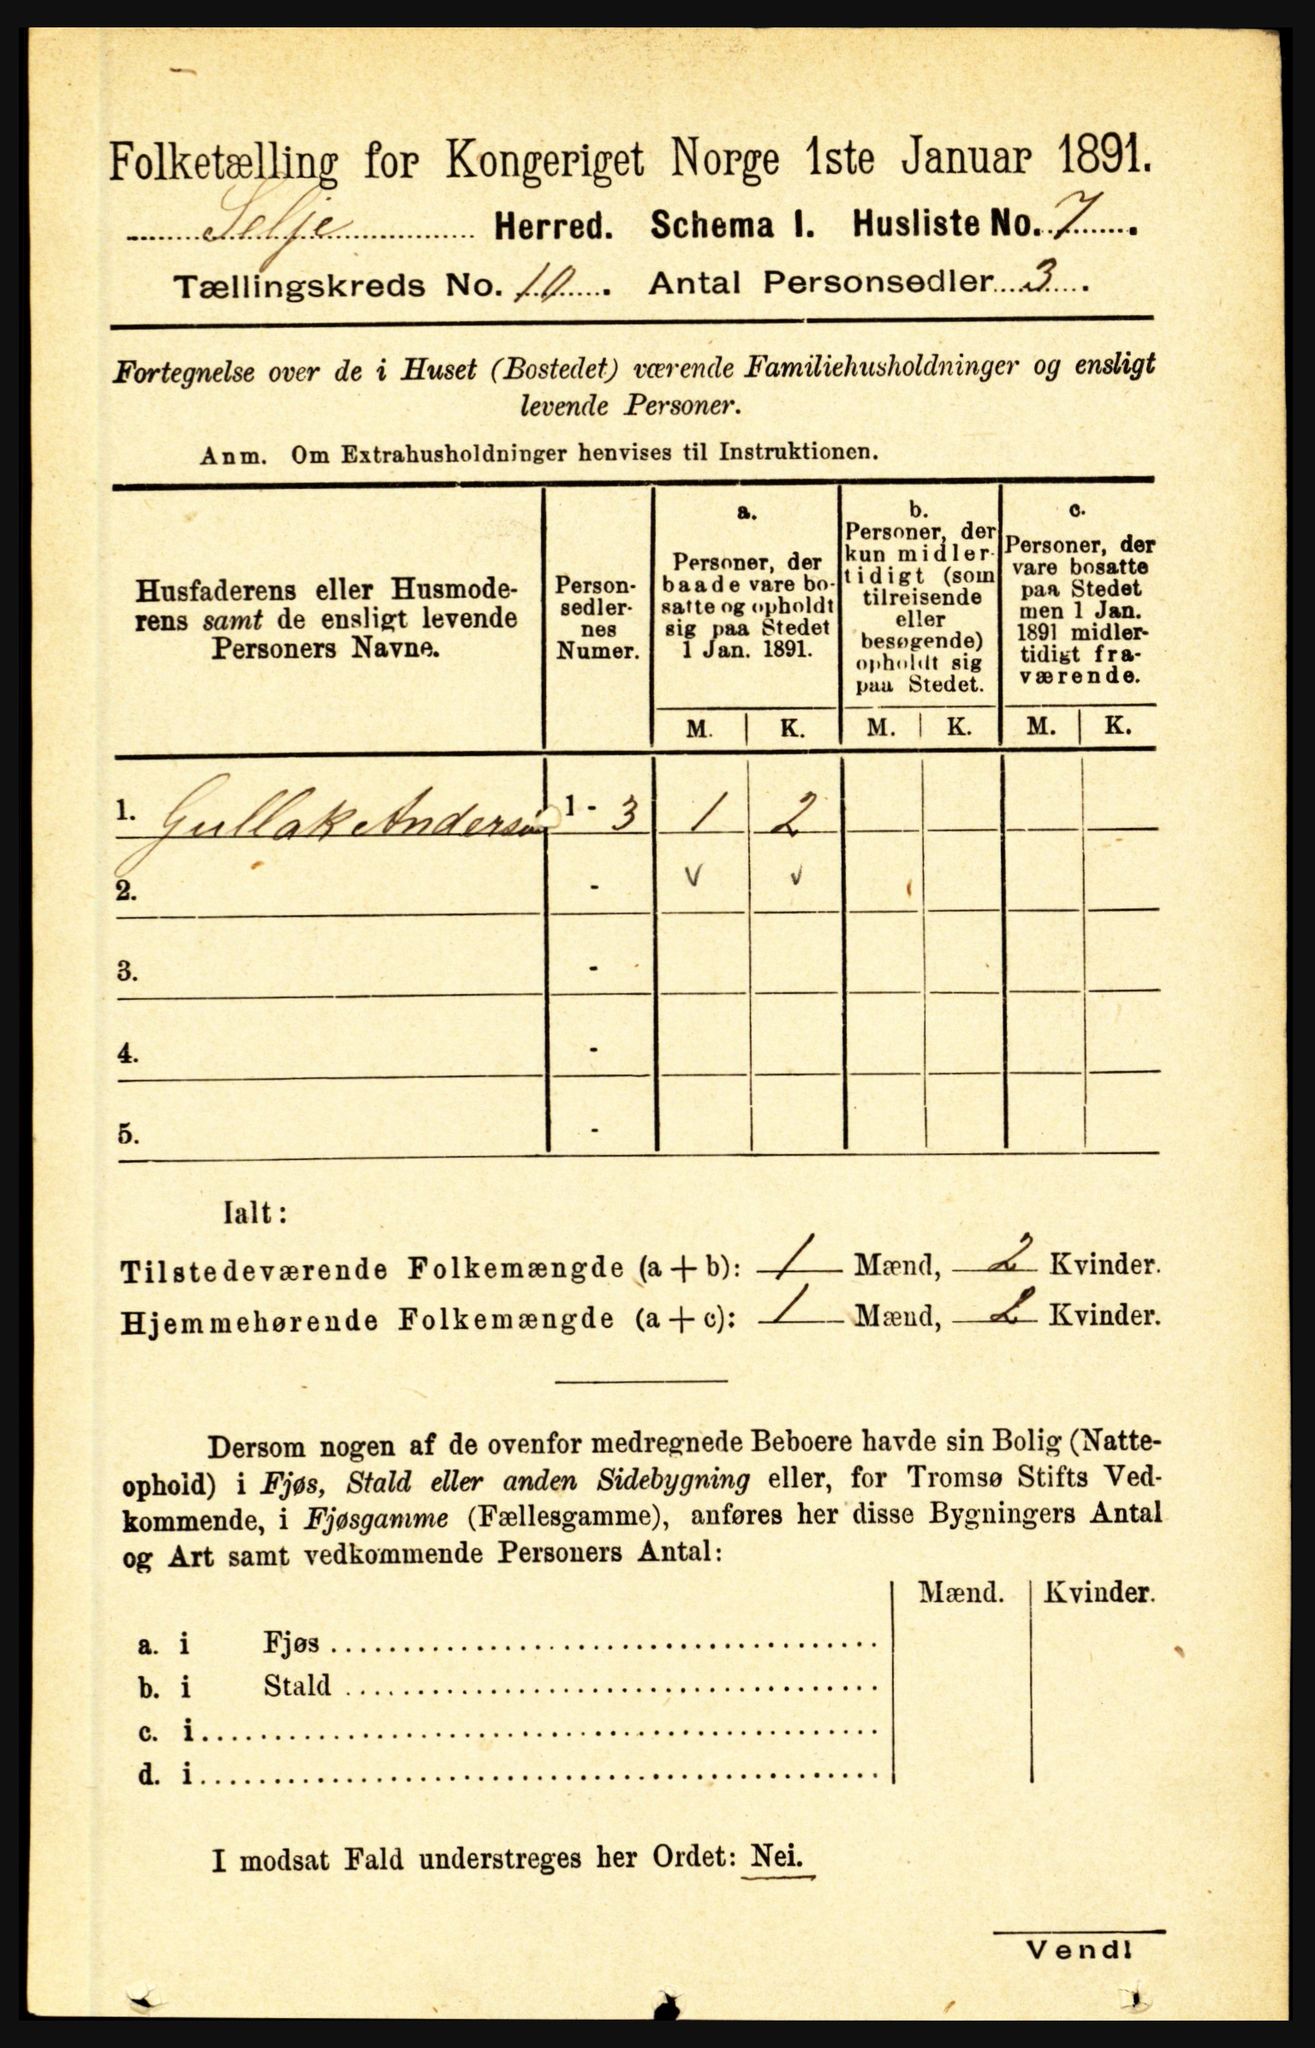 Folketælling for Kongeriget Norge 1ste Januar 1891.
Selje Herred. Schema I. Husliste No. 7.
Tællingskreds No. 10. Antal Personsedler 3.
Fortegnelse over de i Huset (Bostedet) værende Familiehusholdninger og ensligt
levende Personer.
Anm. Om Extrahusholdninger henvises til Instruktionen.
Husfaderens eller Husmode-
rens samt de ensligt levende
Personers Navne.
Person-
sedler-
nes
Numer.
a.
Personer, der
baade vare bo-
satte og opholdt
sig paa Stedet
1 Jan. 1891.
b.
Personer, der
kun midler-
tidigt (som
tilreisende
eller
besøgende)
opholdt sig
paa Stedet.
c.
Personer, der
vare bosatte
paa Stedet
men 1 Jan.
1891 midler-
tidigt fra-
værende.
M. K. M. K. M. K.
1. Gullak Andersen 1 - 3 1 2
2. - v v
3. -
4. -
5. -
Ialt:
Tilstedeværende Folkemængde (a + b): 1 Mænd, 2 Kvinder.
Hjemmehørende Folkemængde (a + c): 1 Mænd, 2 Kvinder.
Dersom nogen af de ovenfor medregnede Beboere havde sin Bolig (Natte-
ophold) i Fjøs, Stald eller anden Sidebygning eller, for Tromsø Stifts Ved-
kommende, i Fjøsgamme (Fællesgamme), anføres her disse Bygningers Antal
og Art samt vedkommende Personers Antal:
Mænd. Kvinder.
a. i Fjøs
b. i Stald
c. i
d. i
I modsat Fald understreges her Ordet: Nei.
Vend!